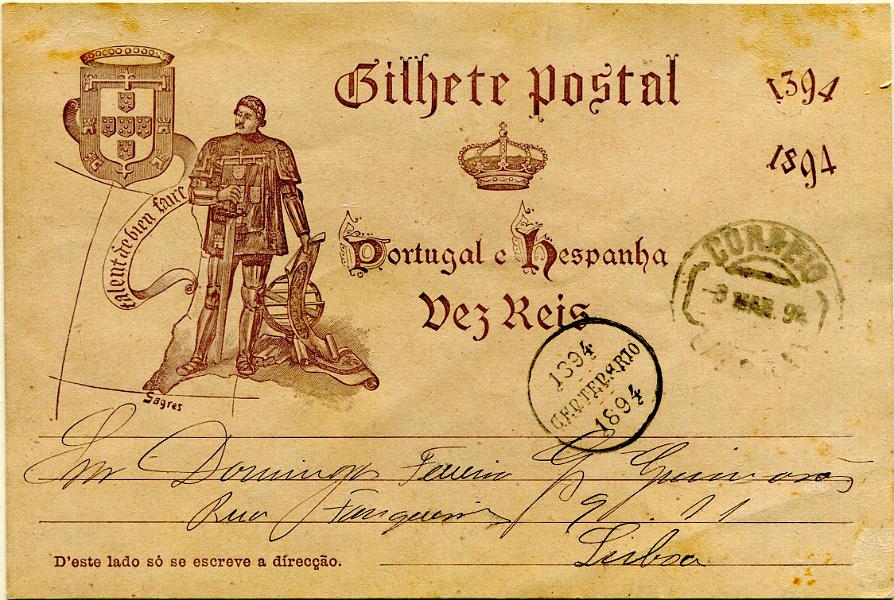 Bilhete Postal
1394
1894
talent de bien faire
Portugal e Hespanha
Dez Reis
CORREIO
8 MAR. 94
1394
CENTENARIO
1894
Sagres
Snr Domingos Ferreira Guimarães
Rua Fanqueiros 9 . 11
Lisboa
D'este lado só se escreve a dírecção.